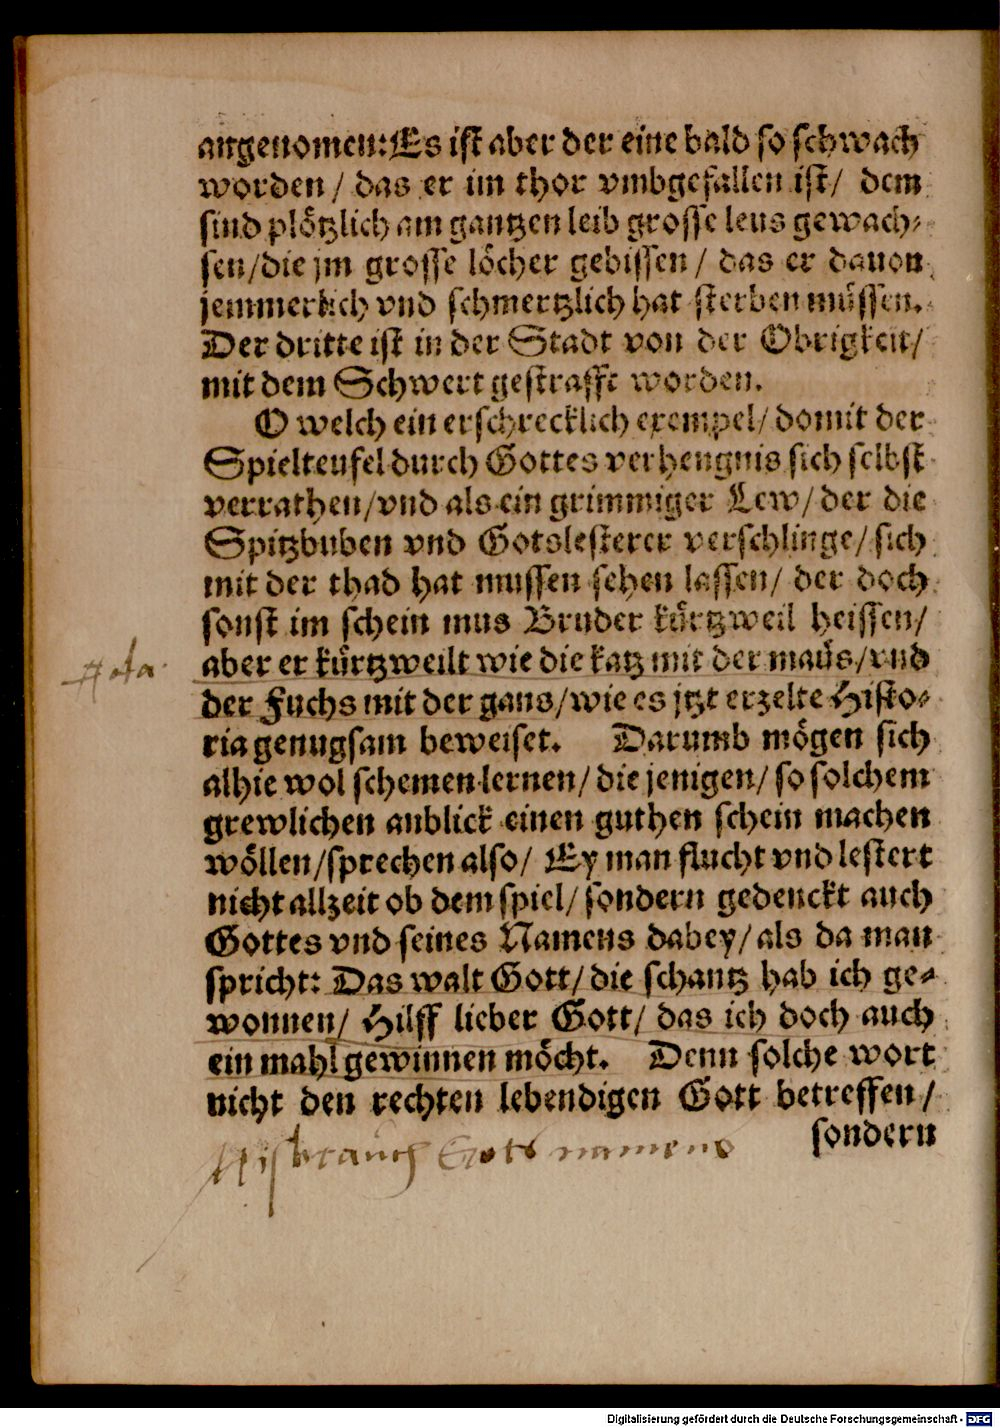 angenomen: Es ist aber der eine bald so schwach
worden / das er im thor vmbgefallen ist / dem
sind plötzlich am gantzen leib grosse leus gewach-
sen / die jm grosse löcher gebissen / das er dauon
jemmerlich vnd schmertzlich hat sterben müssen.
Der dritte ist in der Stadt von der Obrigkeit /
mit dem Schwert gestrafft worden.
O welch ein erschrecklich exempel / domit der
Spielteufel durch Gottes verhengnis sich selbst
verrathen / vnd als ein grimmiger Lew / der die
Spitzbuben vnd Gotslesterer verschlinge / sich
mit der thad hat mussen sehen lassen / der doch
sonst im schein mus Bruder kürtzweil heissen /
Nota
aber er kürtzweilt wie die katz mit der maüs / vnd
der Fuchs mit der gans / wie es jtzt erzelte Histo-
ria genugsam beweiset. Darumb mögen sich
alhie wol schemen lernen / die jenigen / so solchem
grewlichen anblick einen guthen schein machen
wöllen / sprechen also / Ey man flucht vnd lestert
nicht allzeit ob dem spiel / sondern gedenckt auch
Gottes vnd seines Namens dabey / als da man
spricht: Das walt Gott / die schantz hab ich ge-
wonnen / Hilff lieber Gott / das ich doch auch
ein mahl gewinnen möcht. Denn solche wort
nicht den rechten lebendigen Gott betreffen /
sondern
Misbrauch Gots namens
Digitalisierung gefördert durch die Deutsche Forschungsgemeinschaft - DFG